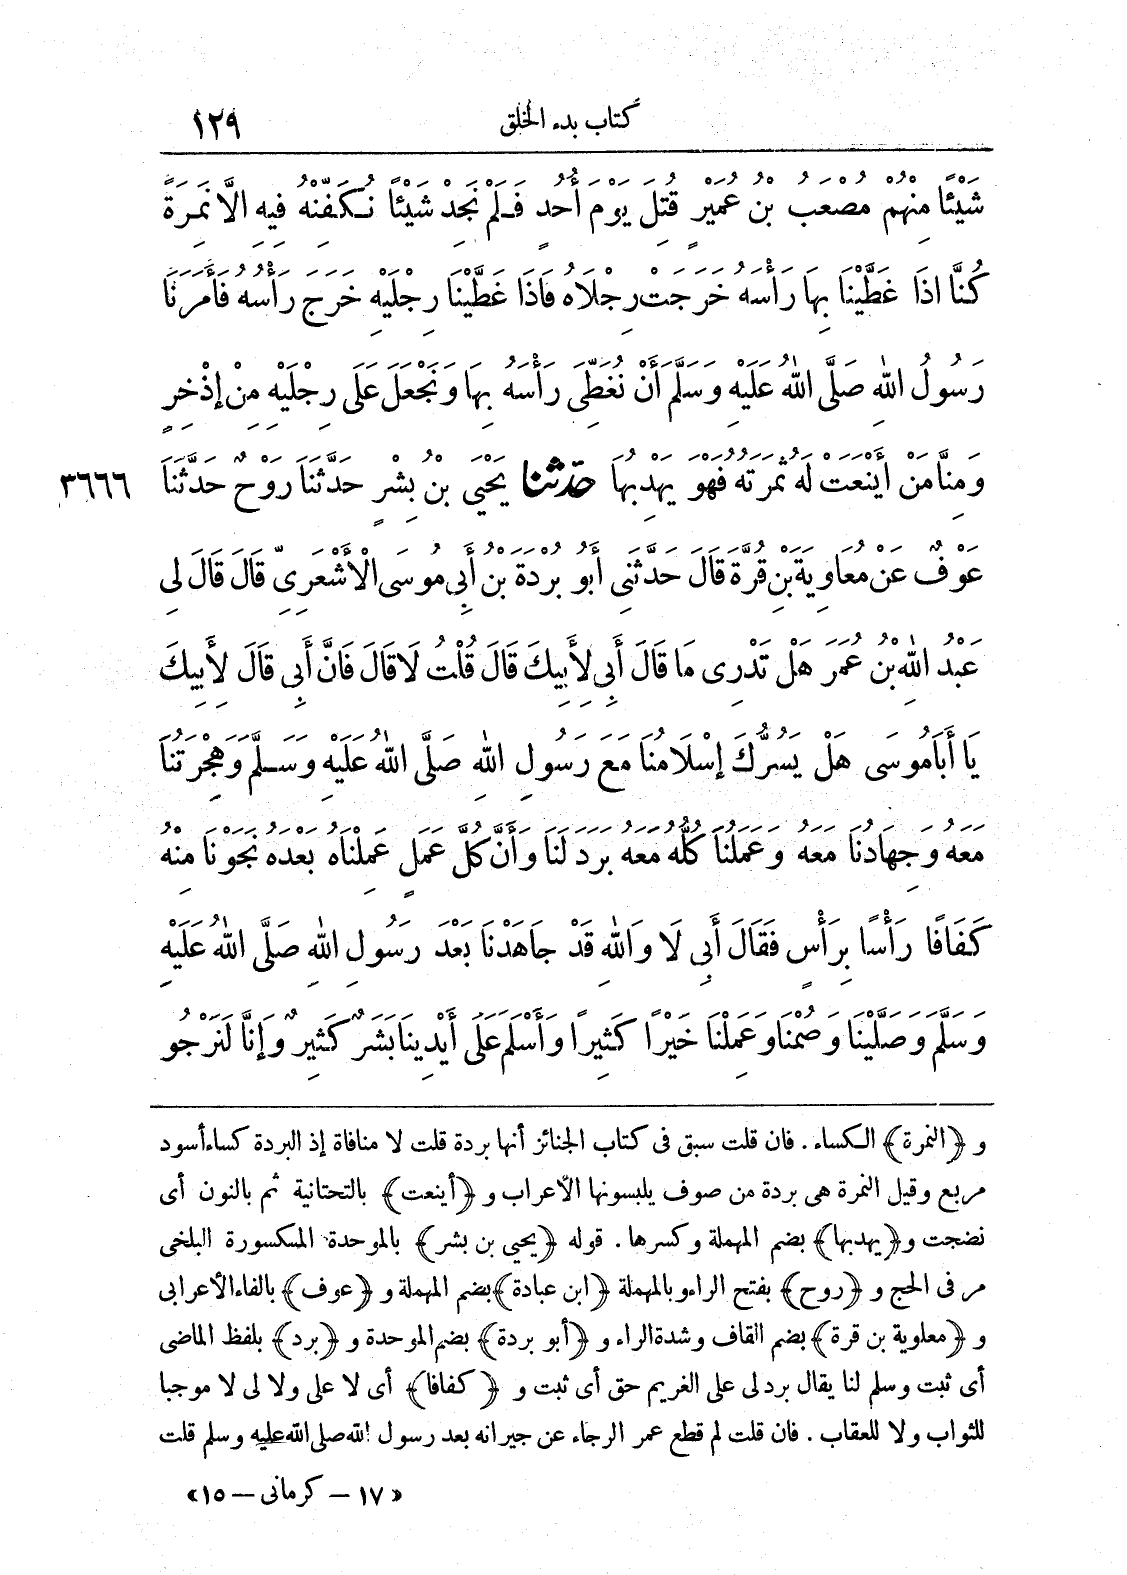 كتاب بدء الخلق ١٢٩
شَيْئًا مِنْهُمْ مُصْعَبُ بْنُ عُمَيْرٍ قُتِلَ يَوْمَ أُحُدٍ فَلَمْ نَجِدْ شَيْئًا نُكَفِّنُهُ فِيهِ الَّا نَمِرَةً
كُنَّا اذَا غَطَّيْنَا بِهَا رَأْسَهُ خَرَجَتْ رِجْلَاهُ فَاذَا غَطَّيْنَا رِجْلَيْهِ خَرَجَ رَأْسُهُ فَأَمَرَنَا
رَسُولُ اللّٰهِ صَلَّى اللّٰهُ عَلَيْهِ وَسَلَّمَ أَنْ نُغَطِّىَ رَأْسَهُ بِهَا وَنَجْعَلَ عَلَى رِجْلَيْهِ مِنْ إذْخِرٍ
وَمِنَّا مَنْ أَيْنَعَتْ لَهُ ثَمَرَتُهُ فَهْوَ يَهْدُبُهَا حَدَّثَنَا يَحْيَى بْنُ بِشْرٍ حَدَّثَنَا رَوْحٌ حَدَّثَنَا ٣٦٦٦
عَوْفٌ عَنْ مُعَاوِيَةَ بْنِ قُرَّةَ قَالَ حَدَّثَنِى أَبُو بُرْدَةَ بْنُ أَبِى مُوسَى الْأَشْعَرِىِّ قَالَ قَالَ لِى
عَبْدُ اللّٰهِ بْنُ عُمَرَ هَلْ تَدْرِى مَا قَالَ أَبِى لِأَبِيكَ قَالَ قُلْتُ لَا قَالَ فَانَّ أَبِى قَالَ لِأَبِيكَ
يَا أَبَا مُوسَى هَلْ يَسُرُّكَ إسْلَامُنَا مَعَ رَسُولِ اللّٰهِ صَلَّى اللّٰهُ عَلَيْهِ وَسَلَّمَ وَهِجْرَتُنَا
مَعَهُ وَجِهَادُنَا مَعَهُ وَعَمَلُنَا كُلُّهُ مَعَهُ بَرَدَ لَنَا وَأَنَّ كُلَّ عَمَلٍ عَمِلْنَاهُ بَعْدَهُ نَجَوْنَا مِنْهُ
كَفَافًا رَأْسًا بِرَأْسٍ فَقَالَ أَبِى لَا وَاللّٰهِ قَدْ جَاهَدْنَا بَعْدَ رَسُولِ اللّٰهِ صَلَّى اللّٰهُ عَلَيْهِ
وَسَلَّمَ وَصَلَّيْنَا وَصُمْنَا وَعَمِلْنَا خَيْرًا كَثِيرًا وَأَسْلَمَ عَلَى أَيْدِينَا بَشَرٌ كَثِيرٌ وَإِنَّا لَنَرْجُو
و ﴿النمرة﴾ الكساء . فان قلت سبق فى كتاب الجنائز أنها بردة قلت لا منافاة إذ البردة كساء أسود
مربع وقيل النمرة هى بردة من صوف يلبسونها الأعراب و ﴿أينعت﴾ بالتحتانية ثم بالنون أى
نضجت و ﴿يهدبها﴾ بضم المهملة وكسرها . قوله ﴿يحيى بن بشر﴾ بالموحدة المكسورة البلخى
مر فى الحج و ﴿روح﴾ بفتح الراء وبالمهملة ﴿ابن عبادة﴾ بضم المهملة و ﴿عوف﴾ بالفاء الأعرابى
و ﴿معاوية بن قرة﴾ بضم القاف وشدة الراء و ﴿أبو بردة﴾ بضم الموحدة و ﴿برد﴾ بلفظ الماضى
أى ثبت وسلم لنا يقال برد لى على الغريم حق أى ثبت و ﴿كفافا﴾ أى لا على ولا لى لا موجبا
للثواب ولا للعقاب . فان قلت لم قطع عمر الرجاء عن جيرانه بعد رسول الله صلى الله عليه وسلم قلت
« ١٧ – كرمانى – ١٥»